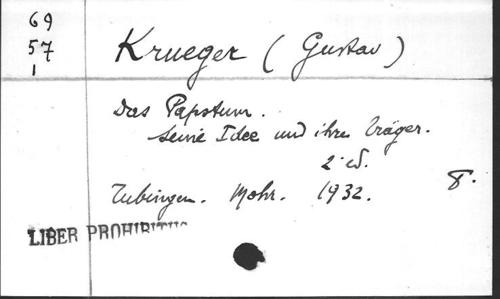 69
57
1
Krueger (Gustav)
Das Papstum.
Seine Idee und ihre Träger.
2. ed.
Tubingen. Mohr. 1932. 8.
LIBER PROHIBITUS